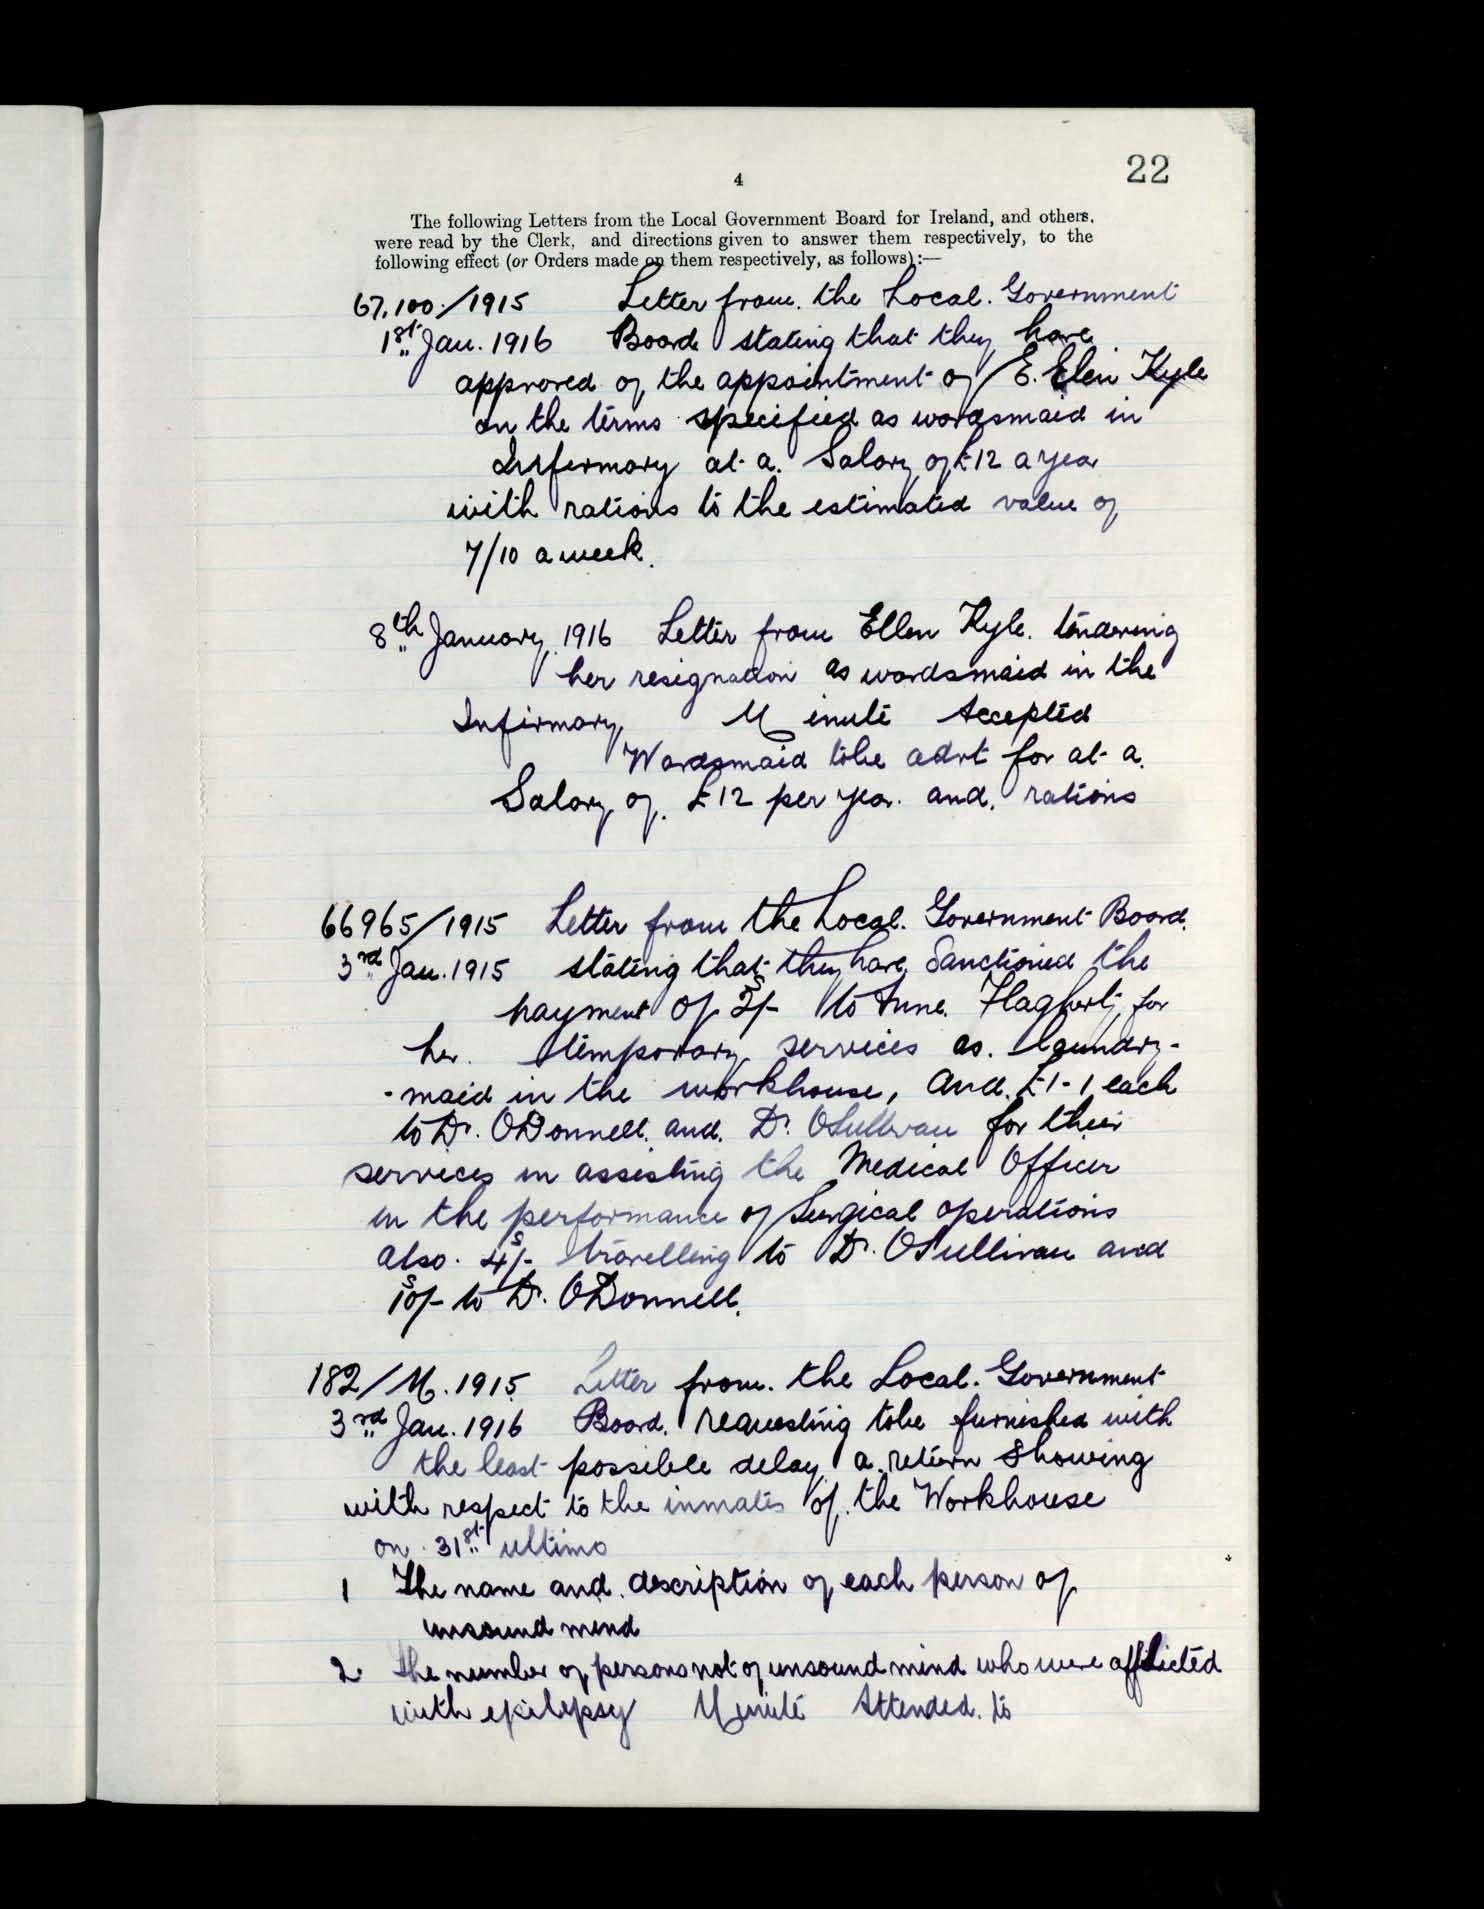 22
4
The following Letters from the Local Government Board for Ireland, and others,
were read by the Clerk, and directions given to answer them respectively, to the
following effect (or Orders made on them respectively, as follows):—
67,100/1915 Letter from the Local Government
1st Jan. 1916 Board stating that they have
approved of the appointment of E. Ellen Kyle
on the terms specified as wardsmaid in
Infirmary at a Salary of £12 a year
with rations to the estimated value of
7/10 a week.
8th January, 1916 Letter from Ellen Kyle tendering
her resignation as wardsmaid in the
Infirmary Minute Accepted
Wardsmaid to be advt for at a
Salary of £12 per year and rations
66965/1915 Letter from the Local Government Board
3rd Jan. 1915 stating that they have Sanctioned the
payment of to Anne Flagherty for
her temporary services as laundry-
-maid in the workhouse, and £1-1 each
to Dr. O'Donnell and Dr. O'Sullivan for their
services in assisting the Medical Officer
in the performance of Surgical operations
also 4s/- travelling to Dr. O'Sullivan and
10s/- to Dr. O'Donnell.
182/M.1915 Letter from the Local Government
3rd Jan. 1916 Board requesting to be furnished with
the least possible delay a return showing
with respect to the inmates of the Workhouse
on 31st ultimo
1 The name and description of each person of
unsound mind
2. the number of persons not of unsound mind who were afflicted
with epilepsy Minute Attended to